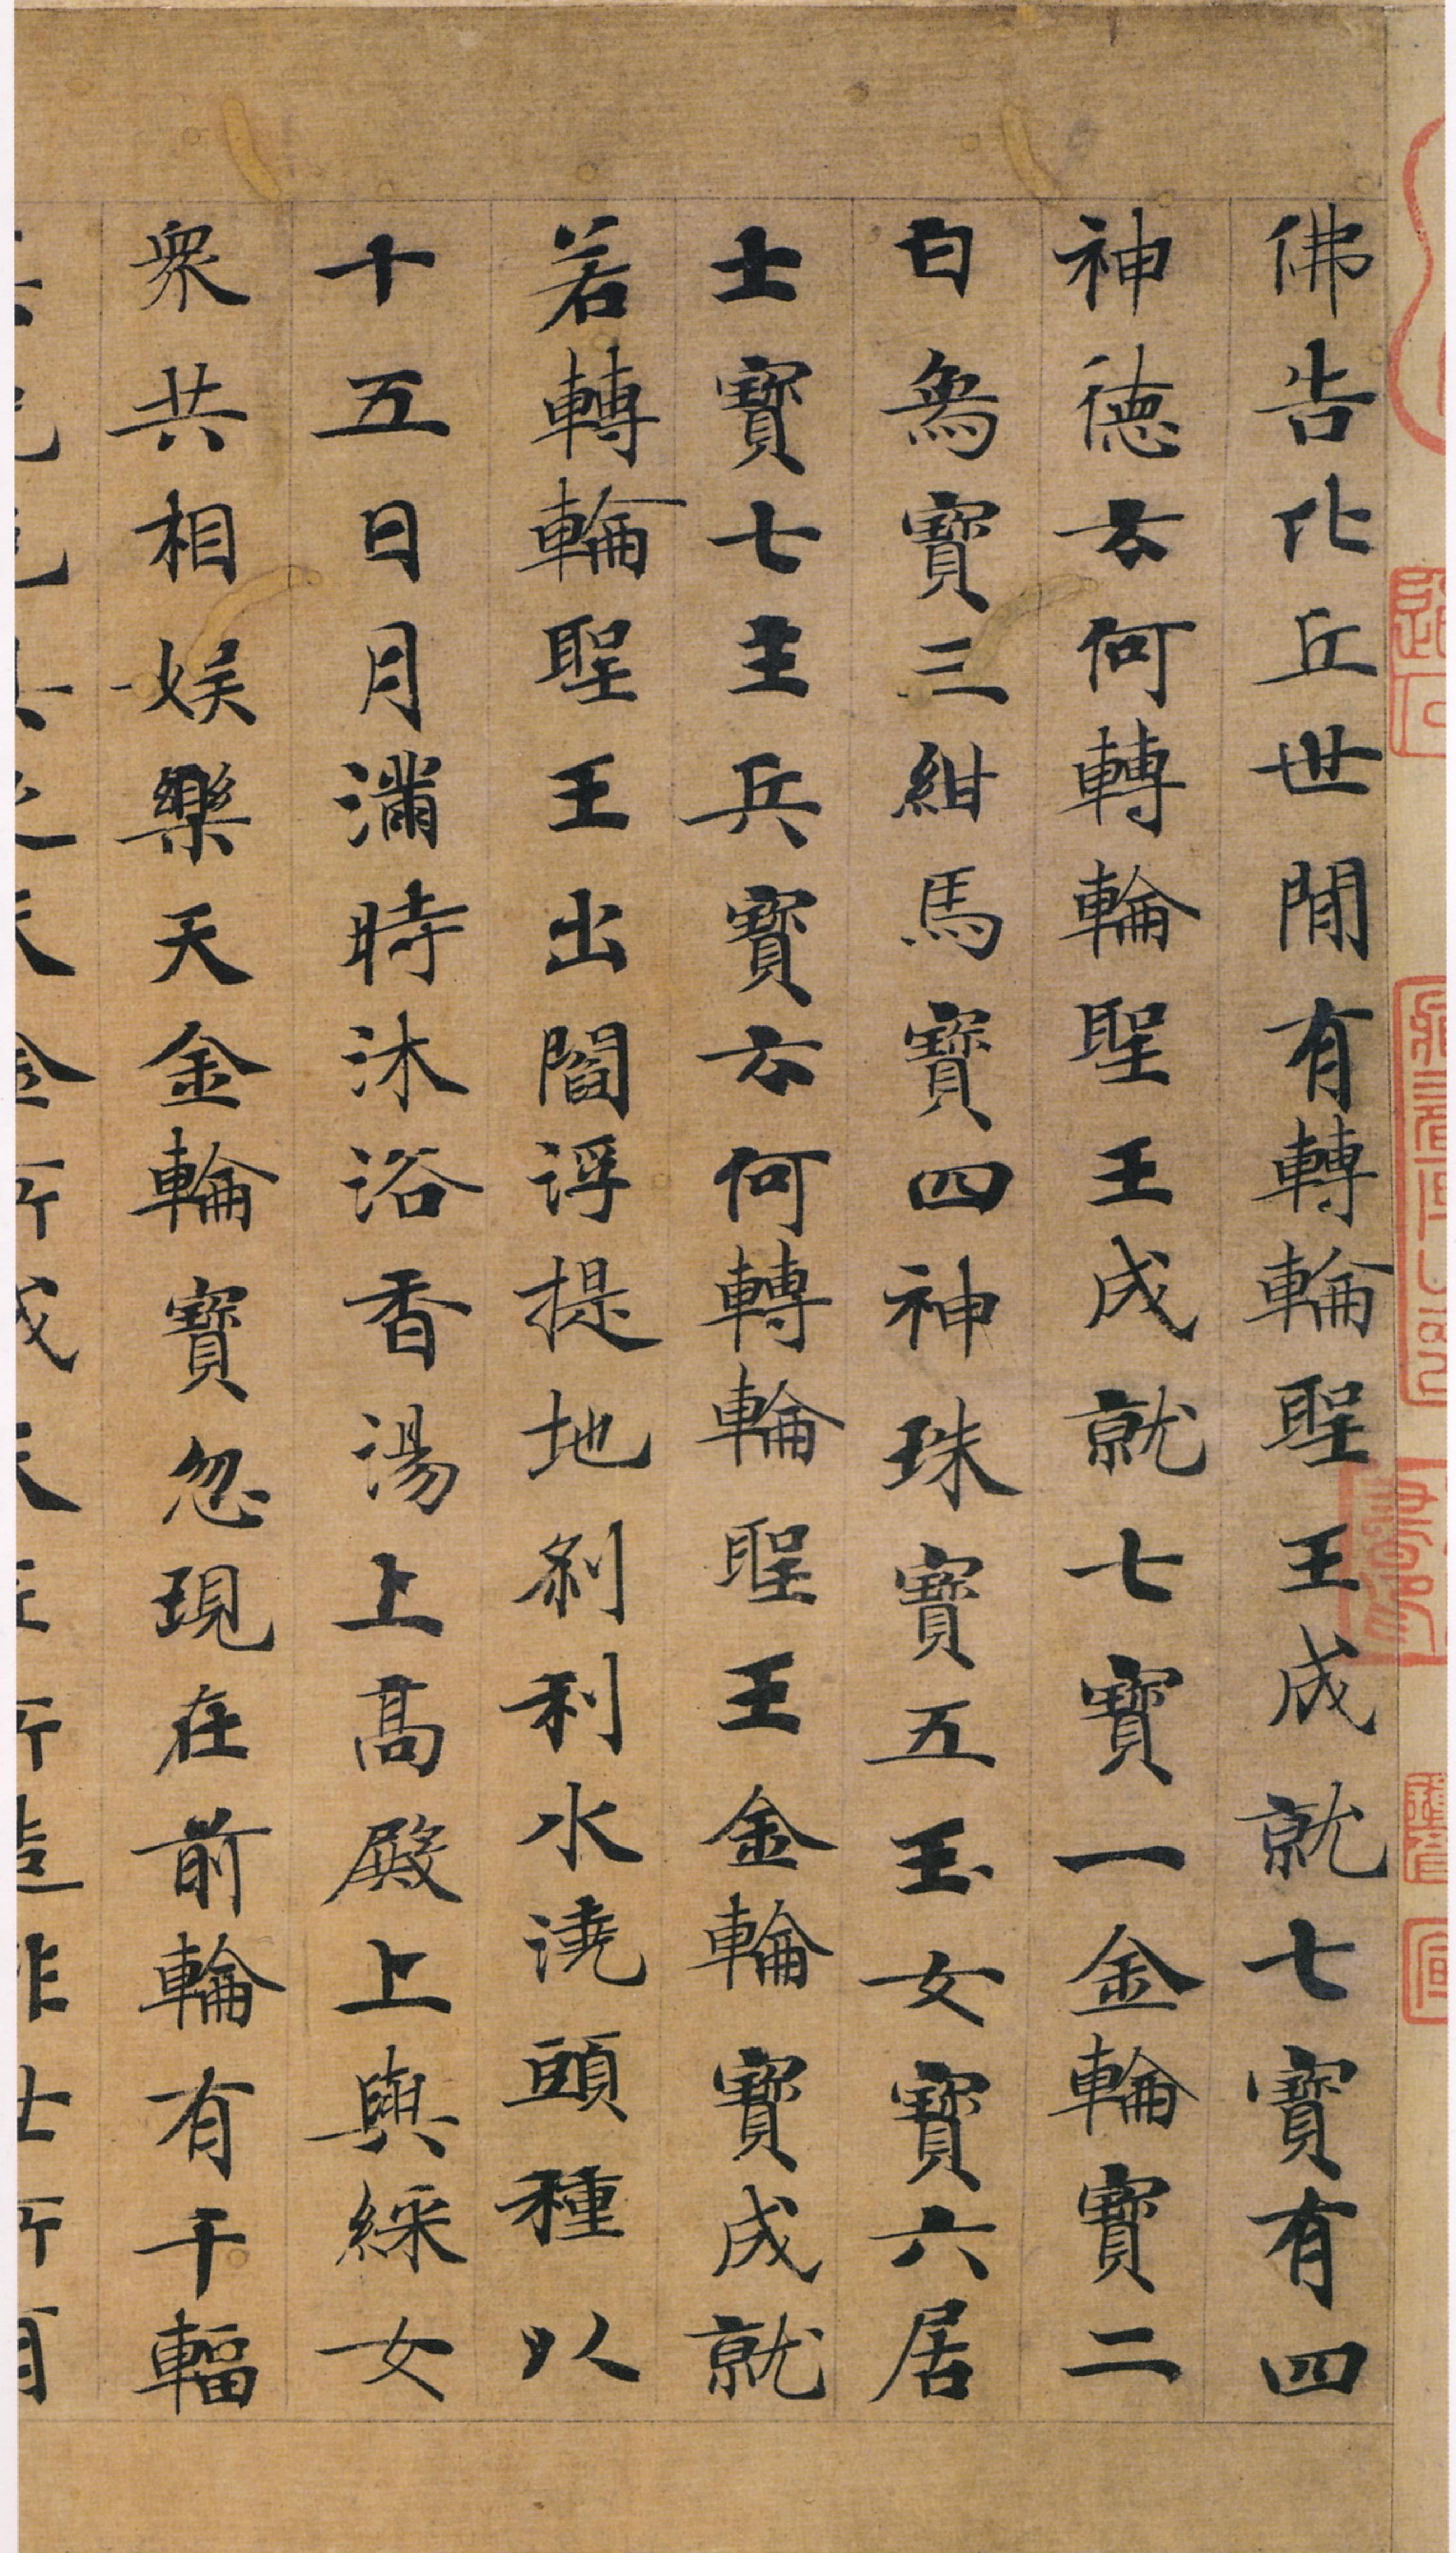 佛告比丘世間有轉輪聖王成就七寶有四
神德云何轉輪聖王成就七寶一金輪寶二
白為寶三紺馬寶四神珠寶五玉女寶六居
士寶七主兵寶云何轉輪聖王金輪寶成就
若轉輪聖王出閻浮提地刹利水澆頭種以
十五日月滿時沐浴香湯上高殿上與綵女
衆共相娛樂天金輪寶忽現在前輪有千輻